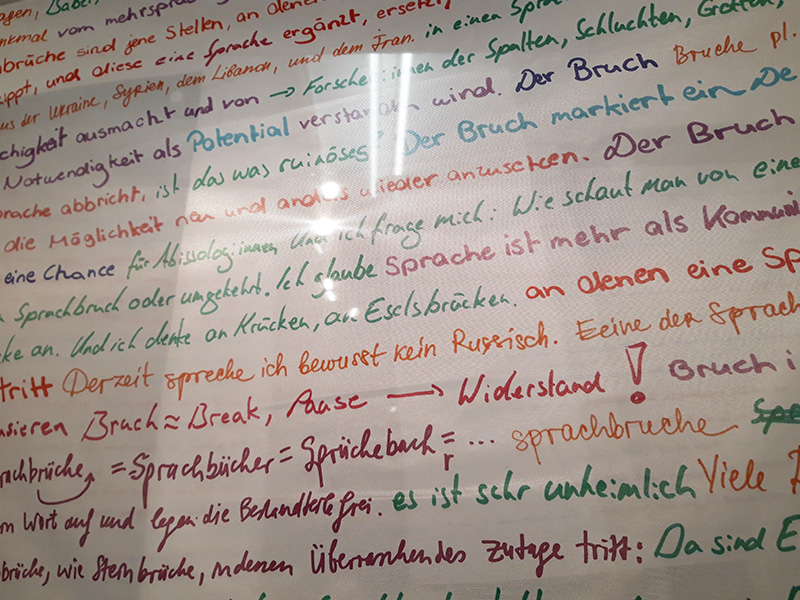 ogen, (Sabel
nkmal vom mehrsprac
brüche sind jene Stellen, an denen
ippt, und diese eine Sprache ergänzt, ersetz
us der Ukraine, Syrien, dem Libanon, und dem Iran. in einen Spra
chigkeit ausmacht und von → Forscher:innen der Spalten, Schluchten, Grotten,
Notwendigkeit als Potential verstanden wird. Der Bruch Bruche pl.
prache abbricht, ist das was ruinöses? Der Bruch markiert ein De
die Möglichkeit neu und anders wieder anzusetzen. Der Bruch
eine Chance für Abissolog:innen Und ich frage mich: Wie schaut man von eine
Sprachbruch oder umgekehrt. Ich glaube Sprache ist mehr als Kommuni
ke an. Und ich denke an Krücken, an Eselsbrücken. an denen eine Sp
tritt Derzeit spreche ich bewusst kein Russisch. Eeine der Sprach
sieren Bruch ≈ Break, Pause → Widerstand ! Bruch i
rachbrüche = Sprachbücher = Sprüchebach = ... sprachbruche Spe
r
m Wort auf und legen die Bestandteile frei. es ist sehr unheimlich Viele
brüche, wie Steinbrüche, in denen Überraschendes zutage tritt: Da sind E